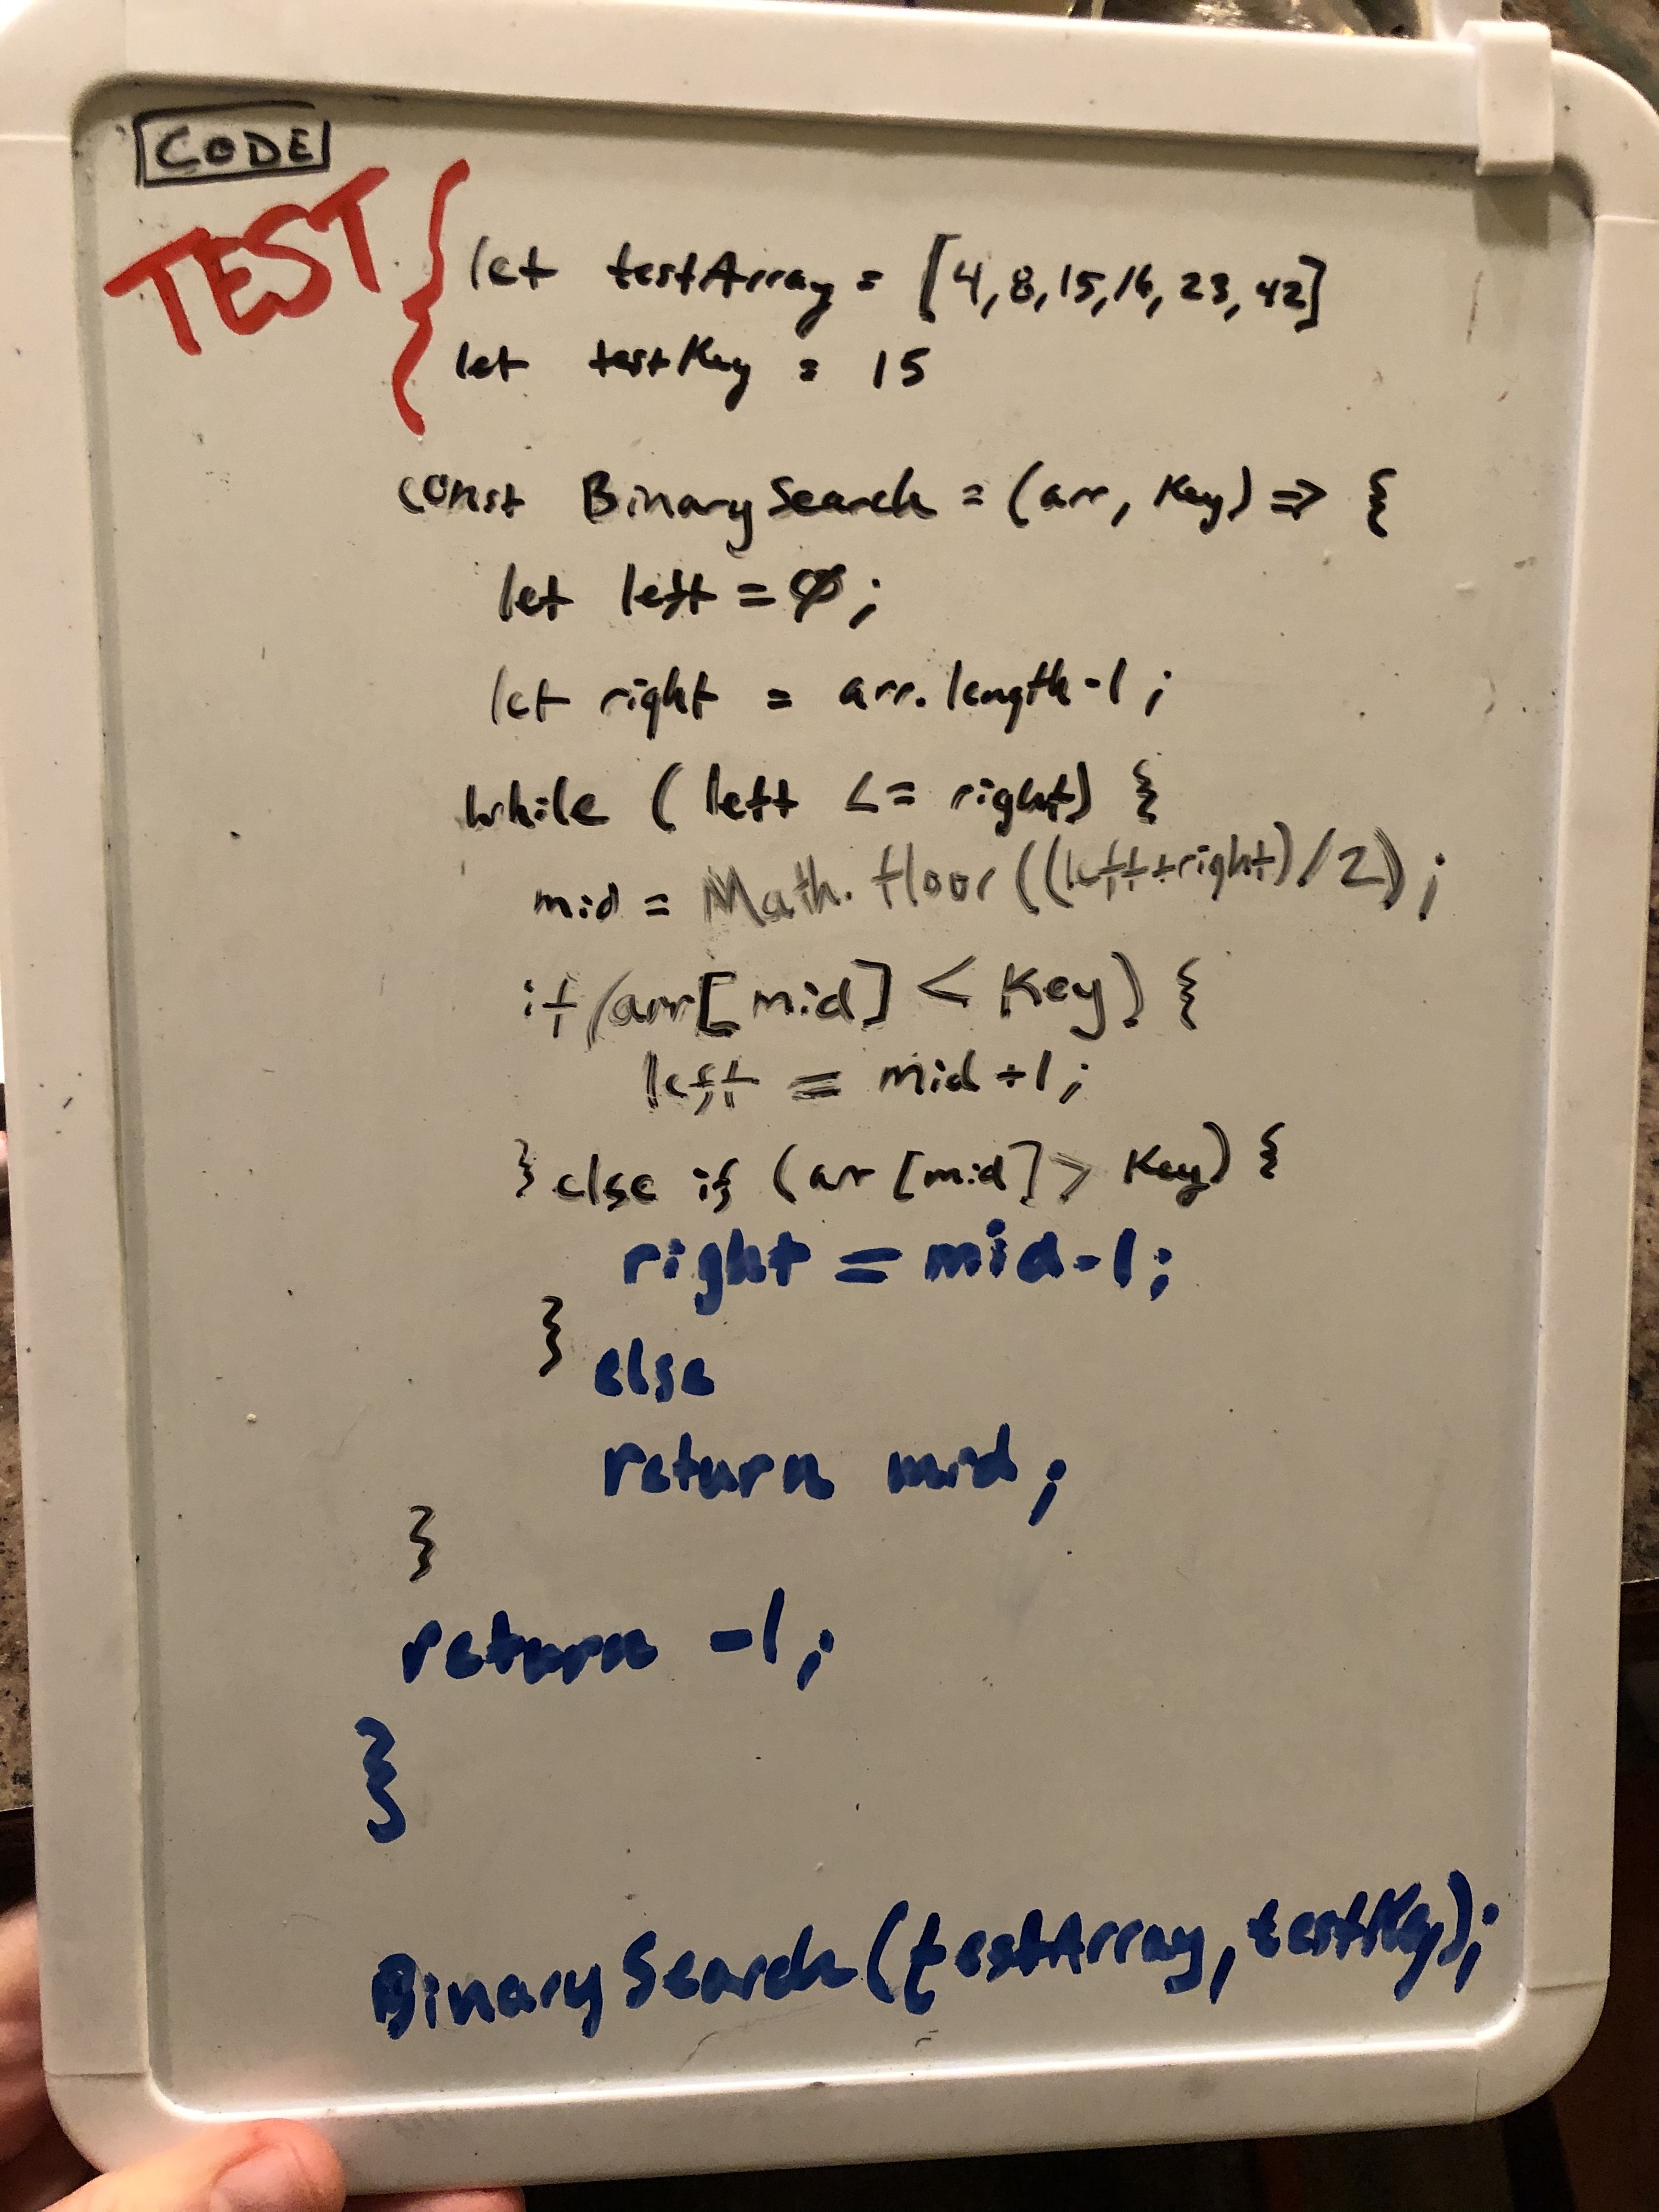 CODE
TEST {
let testArray = [4,8,15,16,23,42]
let testKey = 15
const BinarySearch = (arr, Key) => {
let left = 0;
let right = arr.length-1;
while (left <= right) {
mid = Math.floor((left+right)/2);
if (arr[mid] < Key) {
left = mid+1;
} else if (arr[mid] > Key) {
right = mid-1;
} else
return mid;
}
return -1;
}
BinarySearch(testArray,testKey);